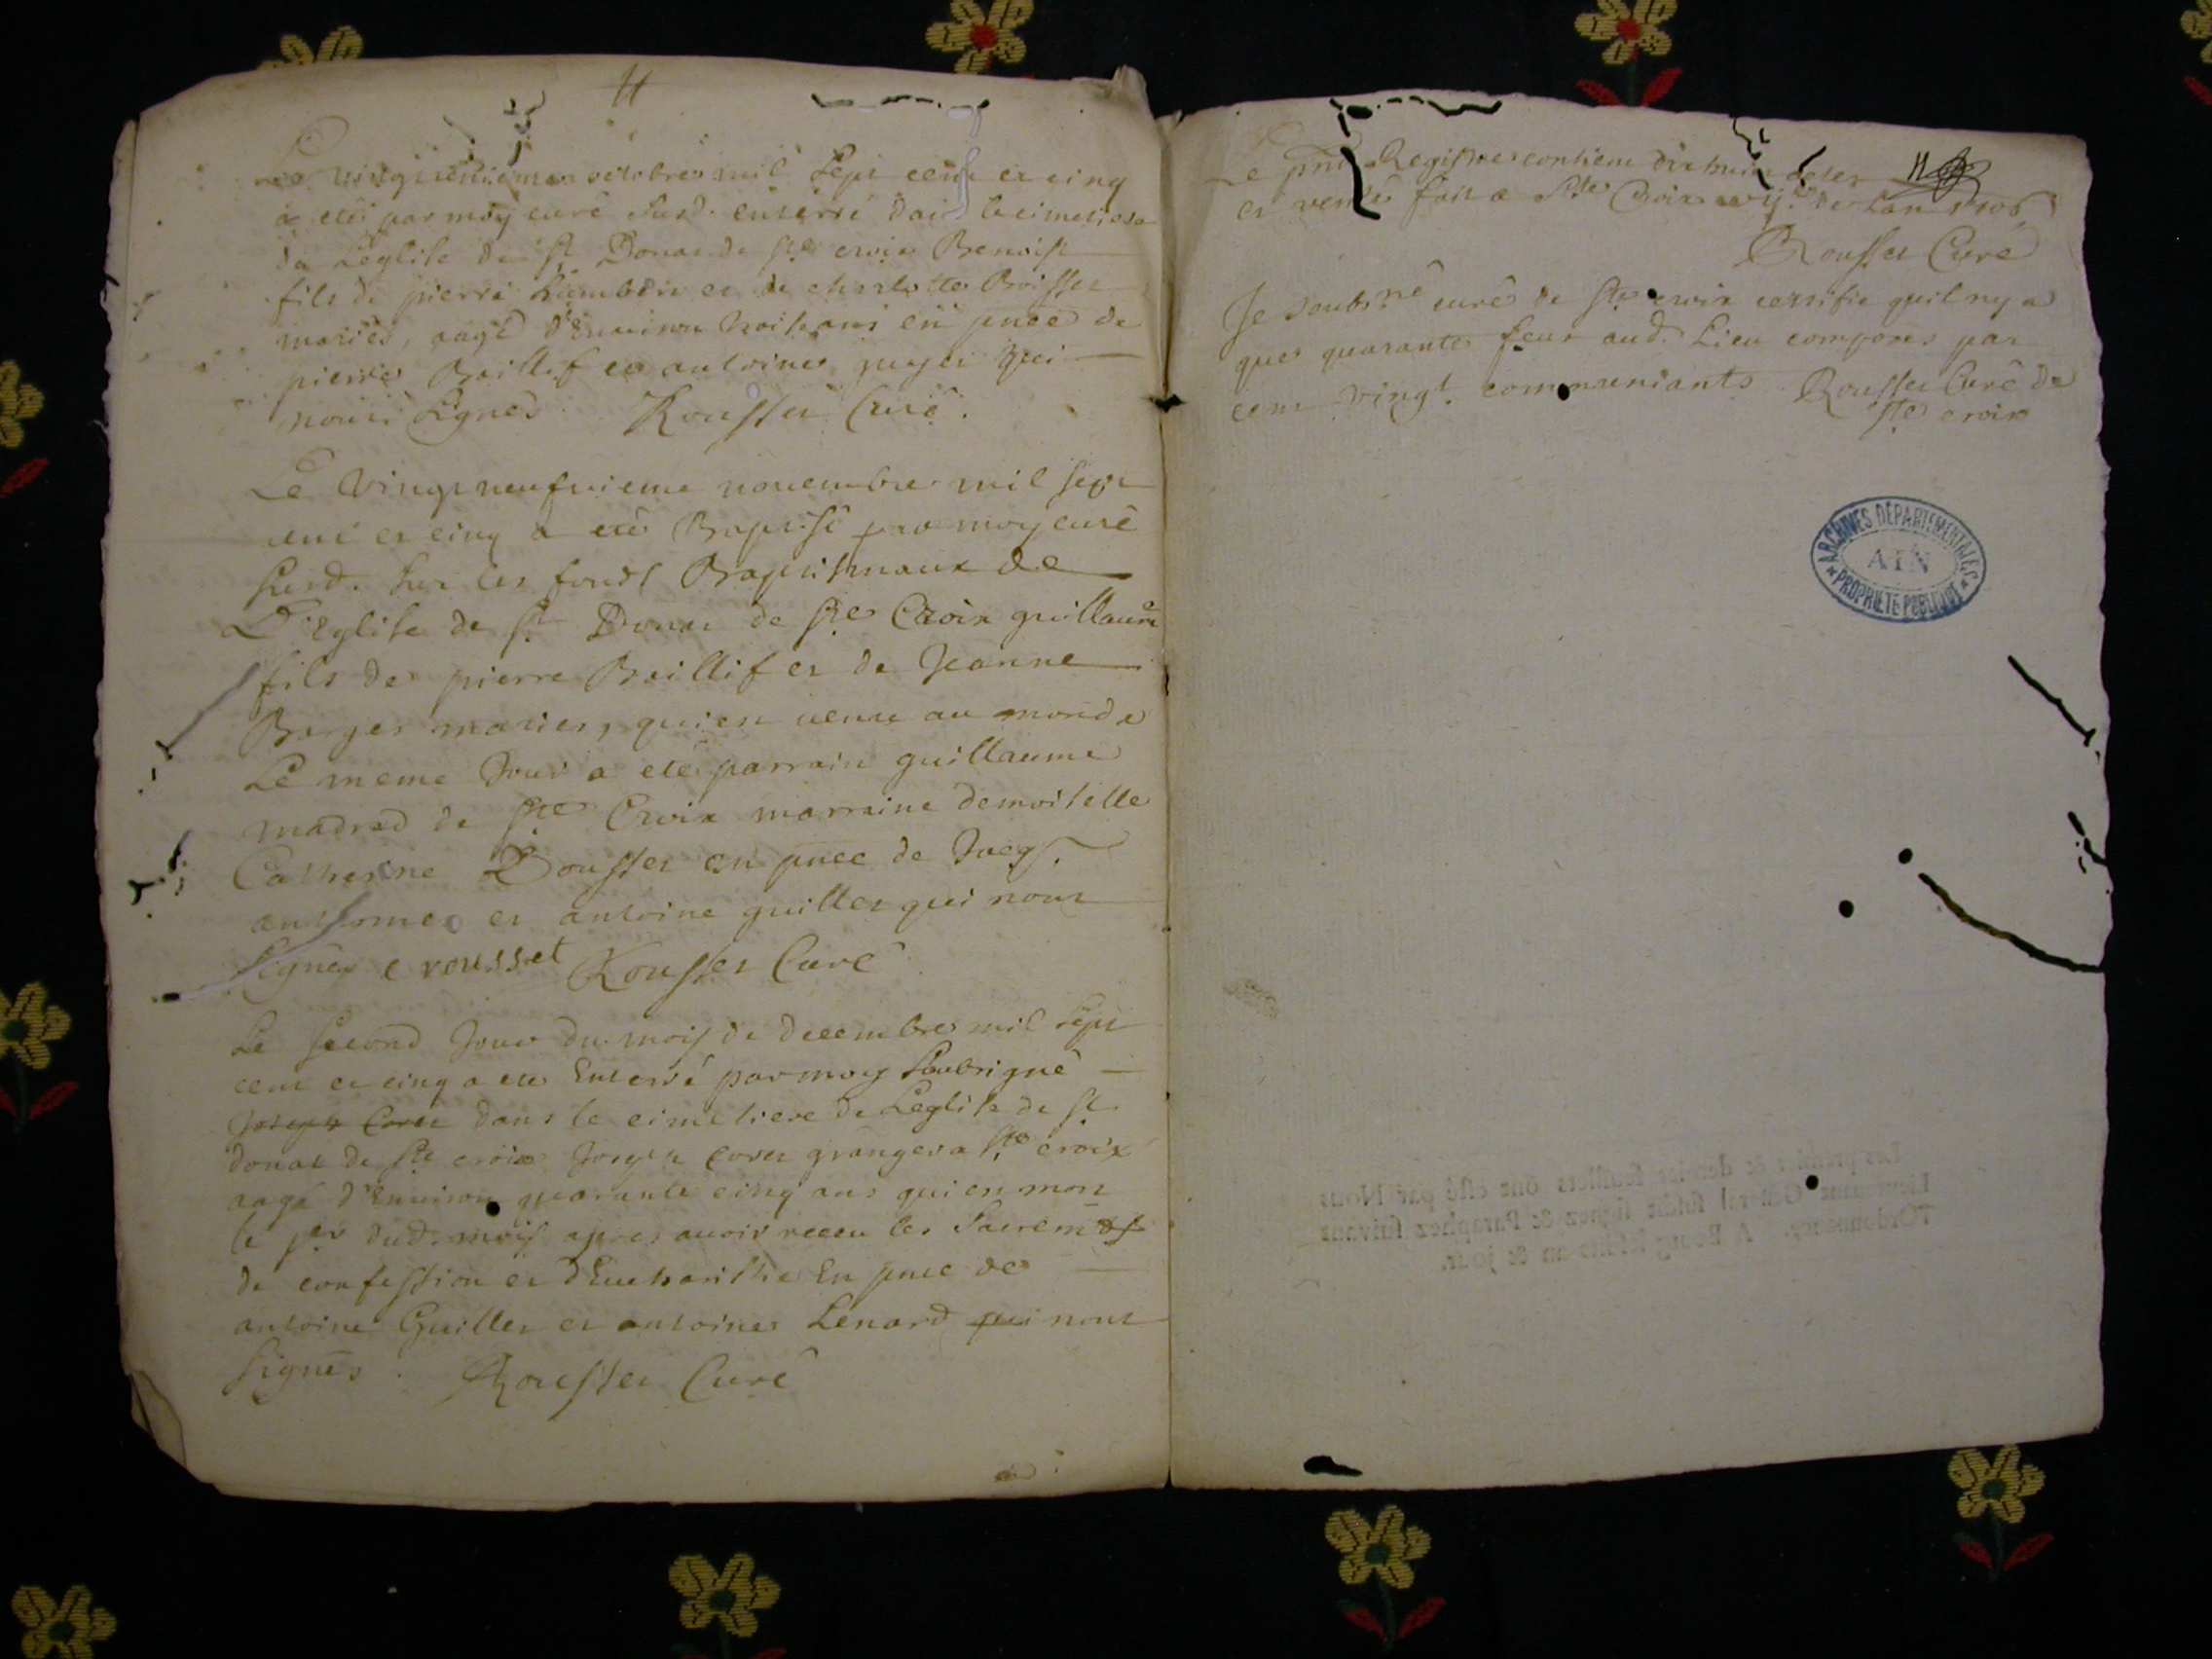 11
Le vingt octobre mil sept cent et cinq
a eté par moy curé susd. enterré dans le cimetiere
de Leglise de st Donat de ste croix Benoist
fils de pierre et de charlotte Boisset
mariés, aagé d'Environ trois ans en pnce de
pierre Baillif et antoine qui
nont signés. Rousset Curé.
Le vingt neufvieme novembre mil sept
cent et cinq a eté Baptisé par moy curé
susd. sur les fonds Baptismaux de
L'Eglise de st Donat de ste Croix guillaume
fils de pierre Baillif et de Jeanne
Berger mariés, qui est venu au monde
Le meme Jour a eté parrain guillaume
madred de ste Croix marraine demoiselle
Catherine Rousset en pnce de
et antoine guillet qui nont
signés c rousset Rousset Curé
Le second Jour du mois de decembre mil sept
cent et cinq a ete Enterré par moy soubsigné
Joseph Coret dans le cimetiere de Leglise de st
donat de ste croix Joseph coret granger a ste croix
aagé d'Environ quarante cinq ans qui est mort
le per dud. mois apres avoir receu les Sacremts
de confession et d'Eucharistie En pnce de
antoine Guillet et antoine Lenard qui nont
signés. Rousset Curé
Le pnt Registre contient dix huit actes 11
et verité fait a ste Croix de Lan 1706
Rousset Curé
Je soubsné curé de ste croix certifie quil ny a
que quarante feux aud. Lieu composes par
cent vingt communiants Rousset Curé de
ste croix
ARCHIVES DÉPARTEMENTALES
AIN
* PROPRIÉTÉ PUBLIQUE *
Les premier & dernier feuillets ont esté par Nous
Lieutenant General susdit signez & Paraphez suivant
l'Ordonnance. A Bourg lesdits an & jour.